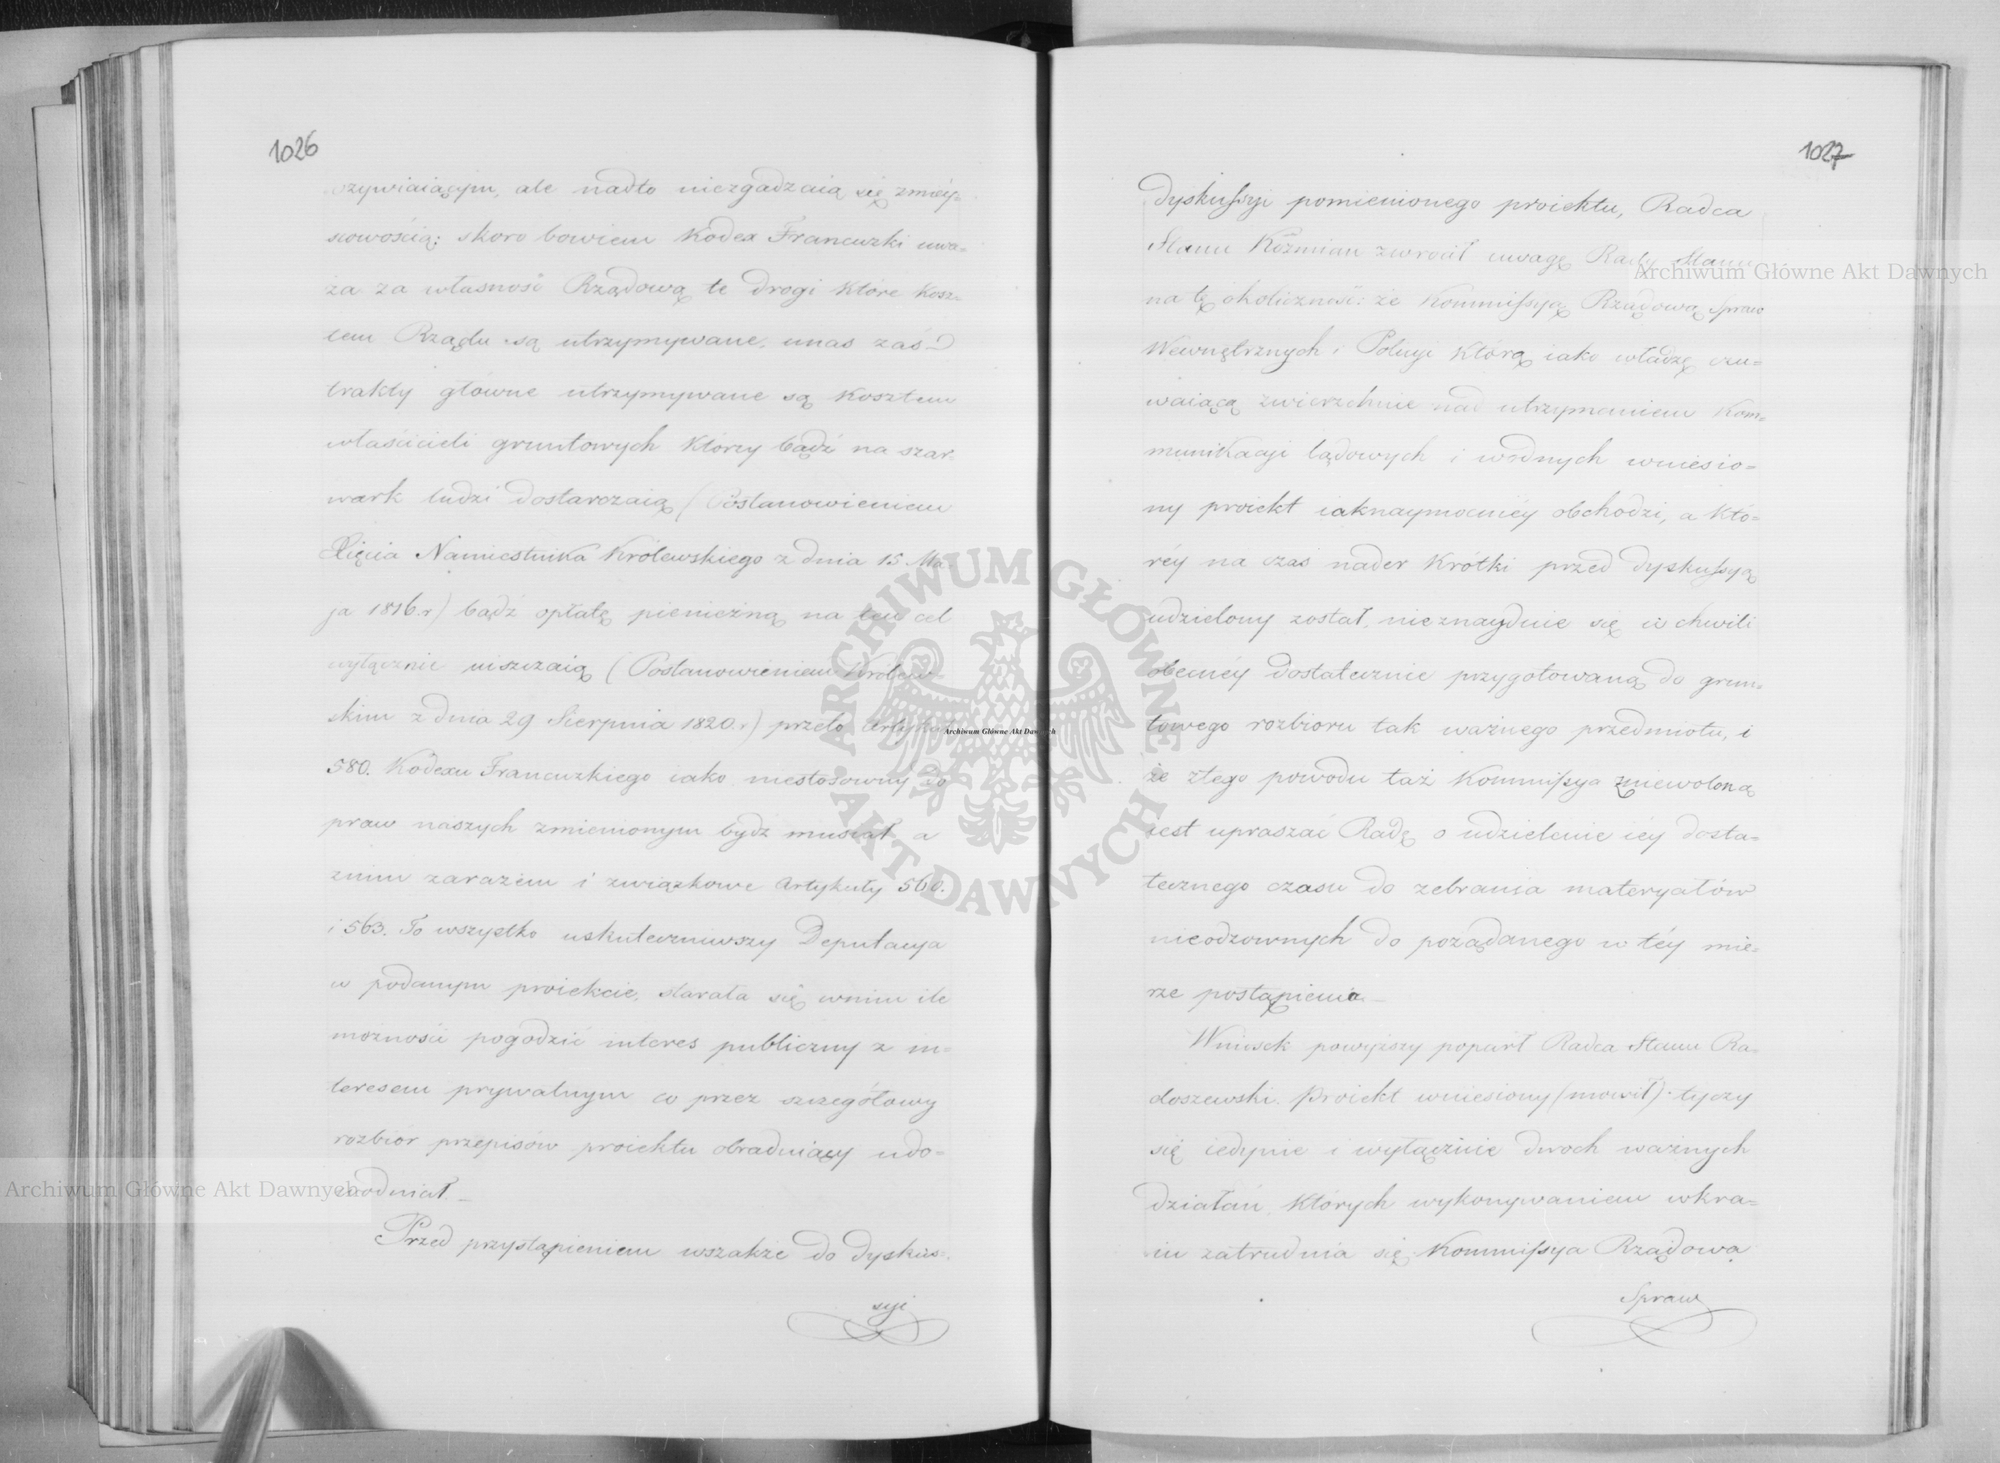 1026
ożywiaiącym, ale nadto niezgadzaią się zmiey-
scowością; skoro bowiem Kodex Francuzki uwa-
ża za własność Rządową te drogi które kosz-
tem Rządu są utrzymywane, unas zaś
trakty główne utrzymywane są kosztem
właścicieli gruntowych którzy bądź na szar-
wark ludzi dostarczaią (Postanowieniem
Xięcia Namiestnika Królewskiego z dnia 15 Ma-
ja 1816.r) bądź opłatę pieniężną na ten cel
wyłącznie uiszczaią (Postanowieniem Królew-
skim z dnia 29 Sierpnia 1820.r) przeto Artykuł
580. Kodexu Francuzkiego iako niestosowny do
praw naszych zmienionym bydź musiał a
znim zarazem i związkowe Artykuły 560.
i 563. To wszystko uskuteczniwszy Deputacya
w podanym proiekcie, starała się wnim ile
możności pogodzić interes publiczny z in-
teresem prywatnym co przez szczegółowy
rozbiór przepisów proiektu obradniący udo-
wodniał.
Przed przystąpieniem wszakże do dyskus-
syi
1027
dyskussyi pomienionego proiektu, Radca
Stanu Koźmian zwrócił uwagę Rady Stanu
na tę okoliczność: że Kommissyą Rządową Spraw
Wewnętrznych i Policyi którą iako władzę czu-
waiącą zwierzchnie nad utrzymaniem Kom-
munikacji lądowych i wodnych wniesio-
ny proiekt iaknaymocniéy obchodzi, a któ-
réy na czas nader krótki przed dyskussyą
udzielony został, nieznayduie się w chwili
obecnéy dostatecznie przygotowaną do grun-
towego rozbioru tak ważnego przedmiotu, i
że ztego powodu taż Kommissya zniewoloną
iest upraszać Radę o udzielenie iéy dosta-
tecznego czasu do zebrania materyałów
nieodzownych do pożądanego w téy mie-
rze postąpienia.
Wniosek powyższy poparł Radca Stanu Ra-
doszewski. Proiekt wniesiony (mowił) tyczy
się iedynie i wyłącznie dwoch ważnych
działań, których wykonywaniem wkra-
iu zatrudnia się Kommissya Rządowa
Spraw
Archiwum Główne Akt Dawnych
Archiwum Główne Akt Dawnych
Archiwum Główne Akt Dawnych
ARCHIWUM GŁÓWNE AKT DAWNYCH